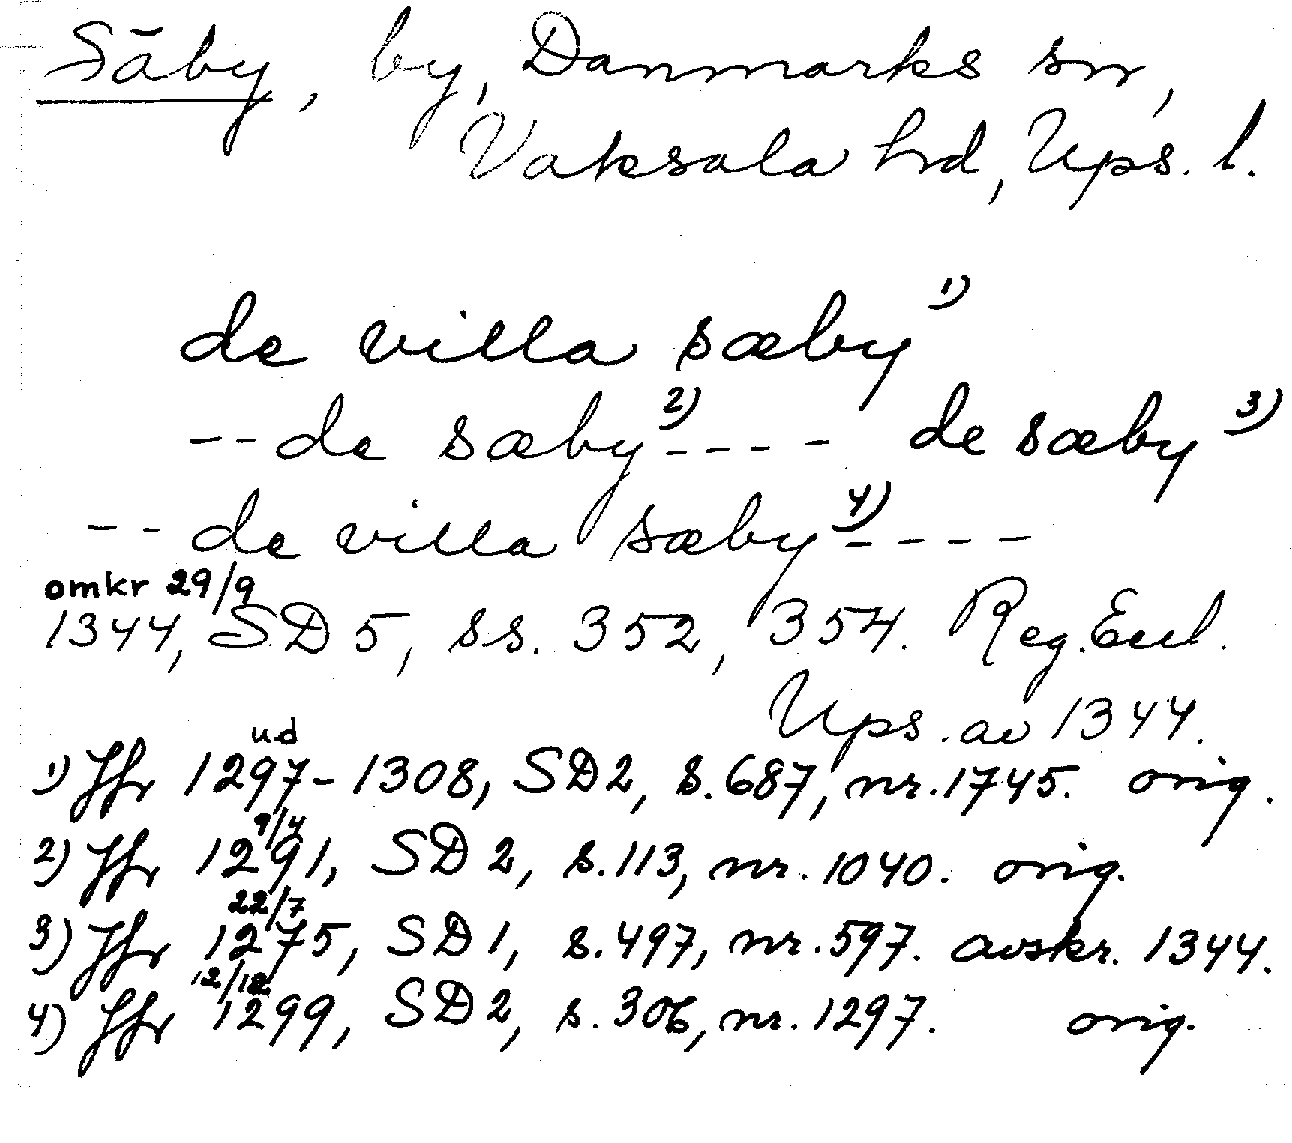 Säby, by, Danmarks sn,
Vaksala hd, Ups. l.
de villa sæby 1)
-- de sæby 2) ---- de sæby 3)
-- de villa sæby 4) ----
omkr 29/9
1344, SD 5, ss. 352, 354. Reg. Eccl.
Ups. av 1344.
ud
1) Jfr 1297-1308, SD 2, s. 687, nr. 1745. orig.
9/4
2) Jfr 1291, SD 2, s. 113, nr. 1040. orig.
22/7
3) Jfr 1275, SD 1, s. 497, nr. 597. avskr. 1344.
12/12
4) Jfr 1299, SD 2, s. 306, nr. 1297. orig.